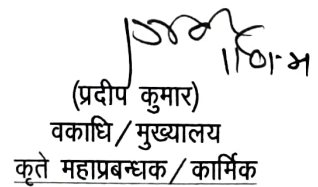 (प्रदीप कुमार)
वकाधि/मुख्यालय
कृते महाप्रबन्धक/कार्मिक